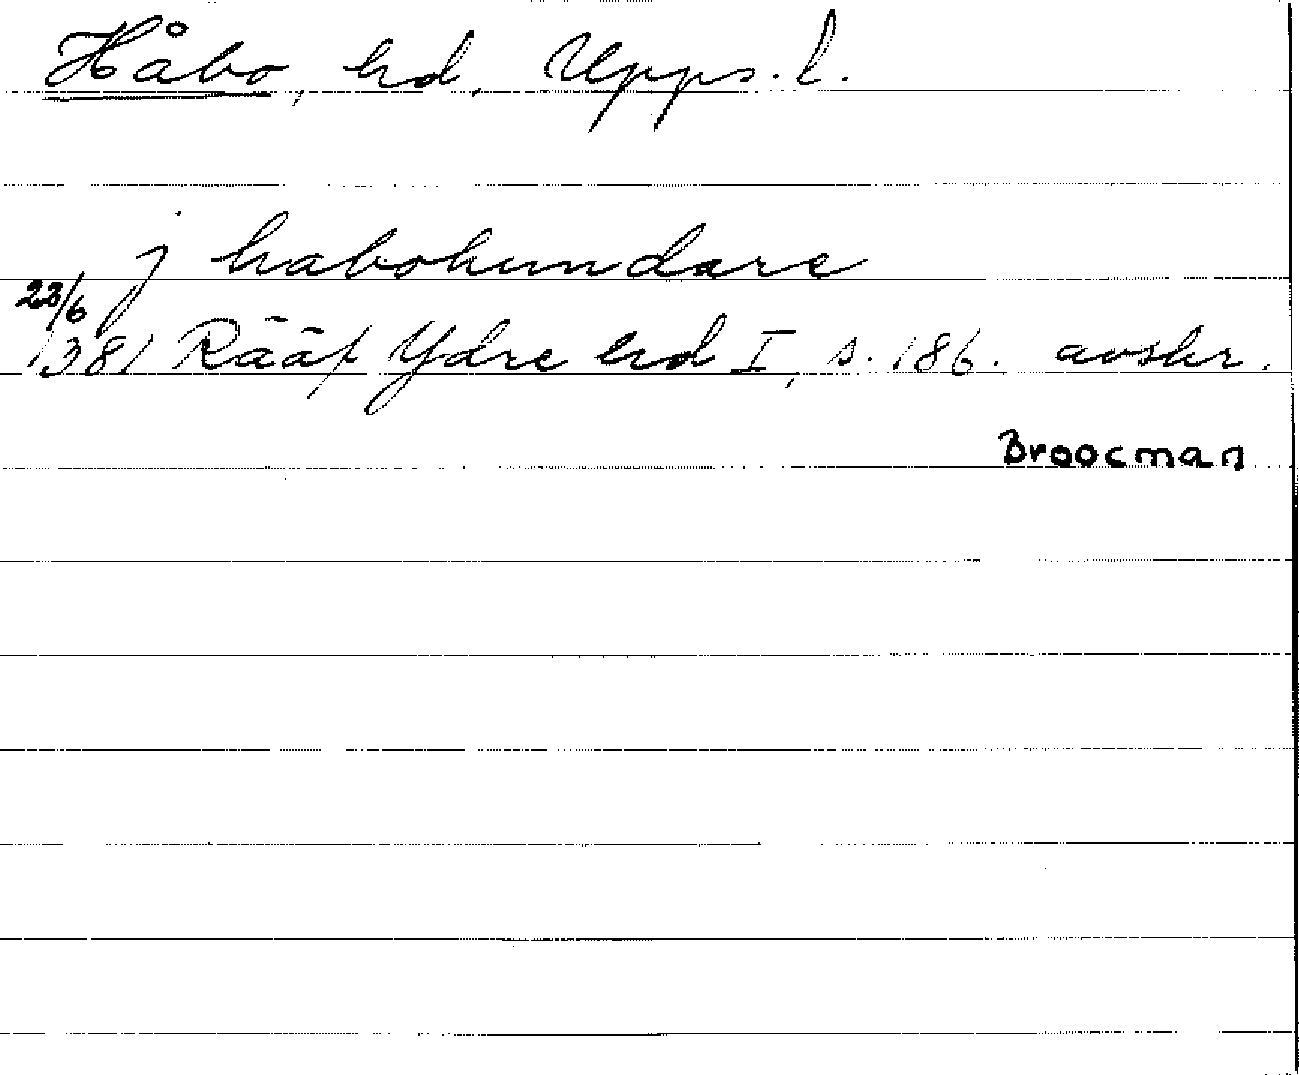 Håbo, hd, Upps. l.
j habohundare
22/6
1381 Rääf Ydre hd I, s. 186. avskr.
Broocman